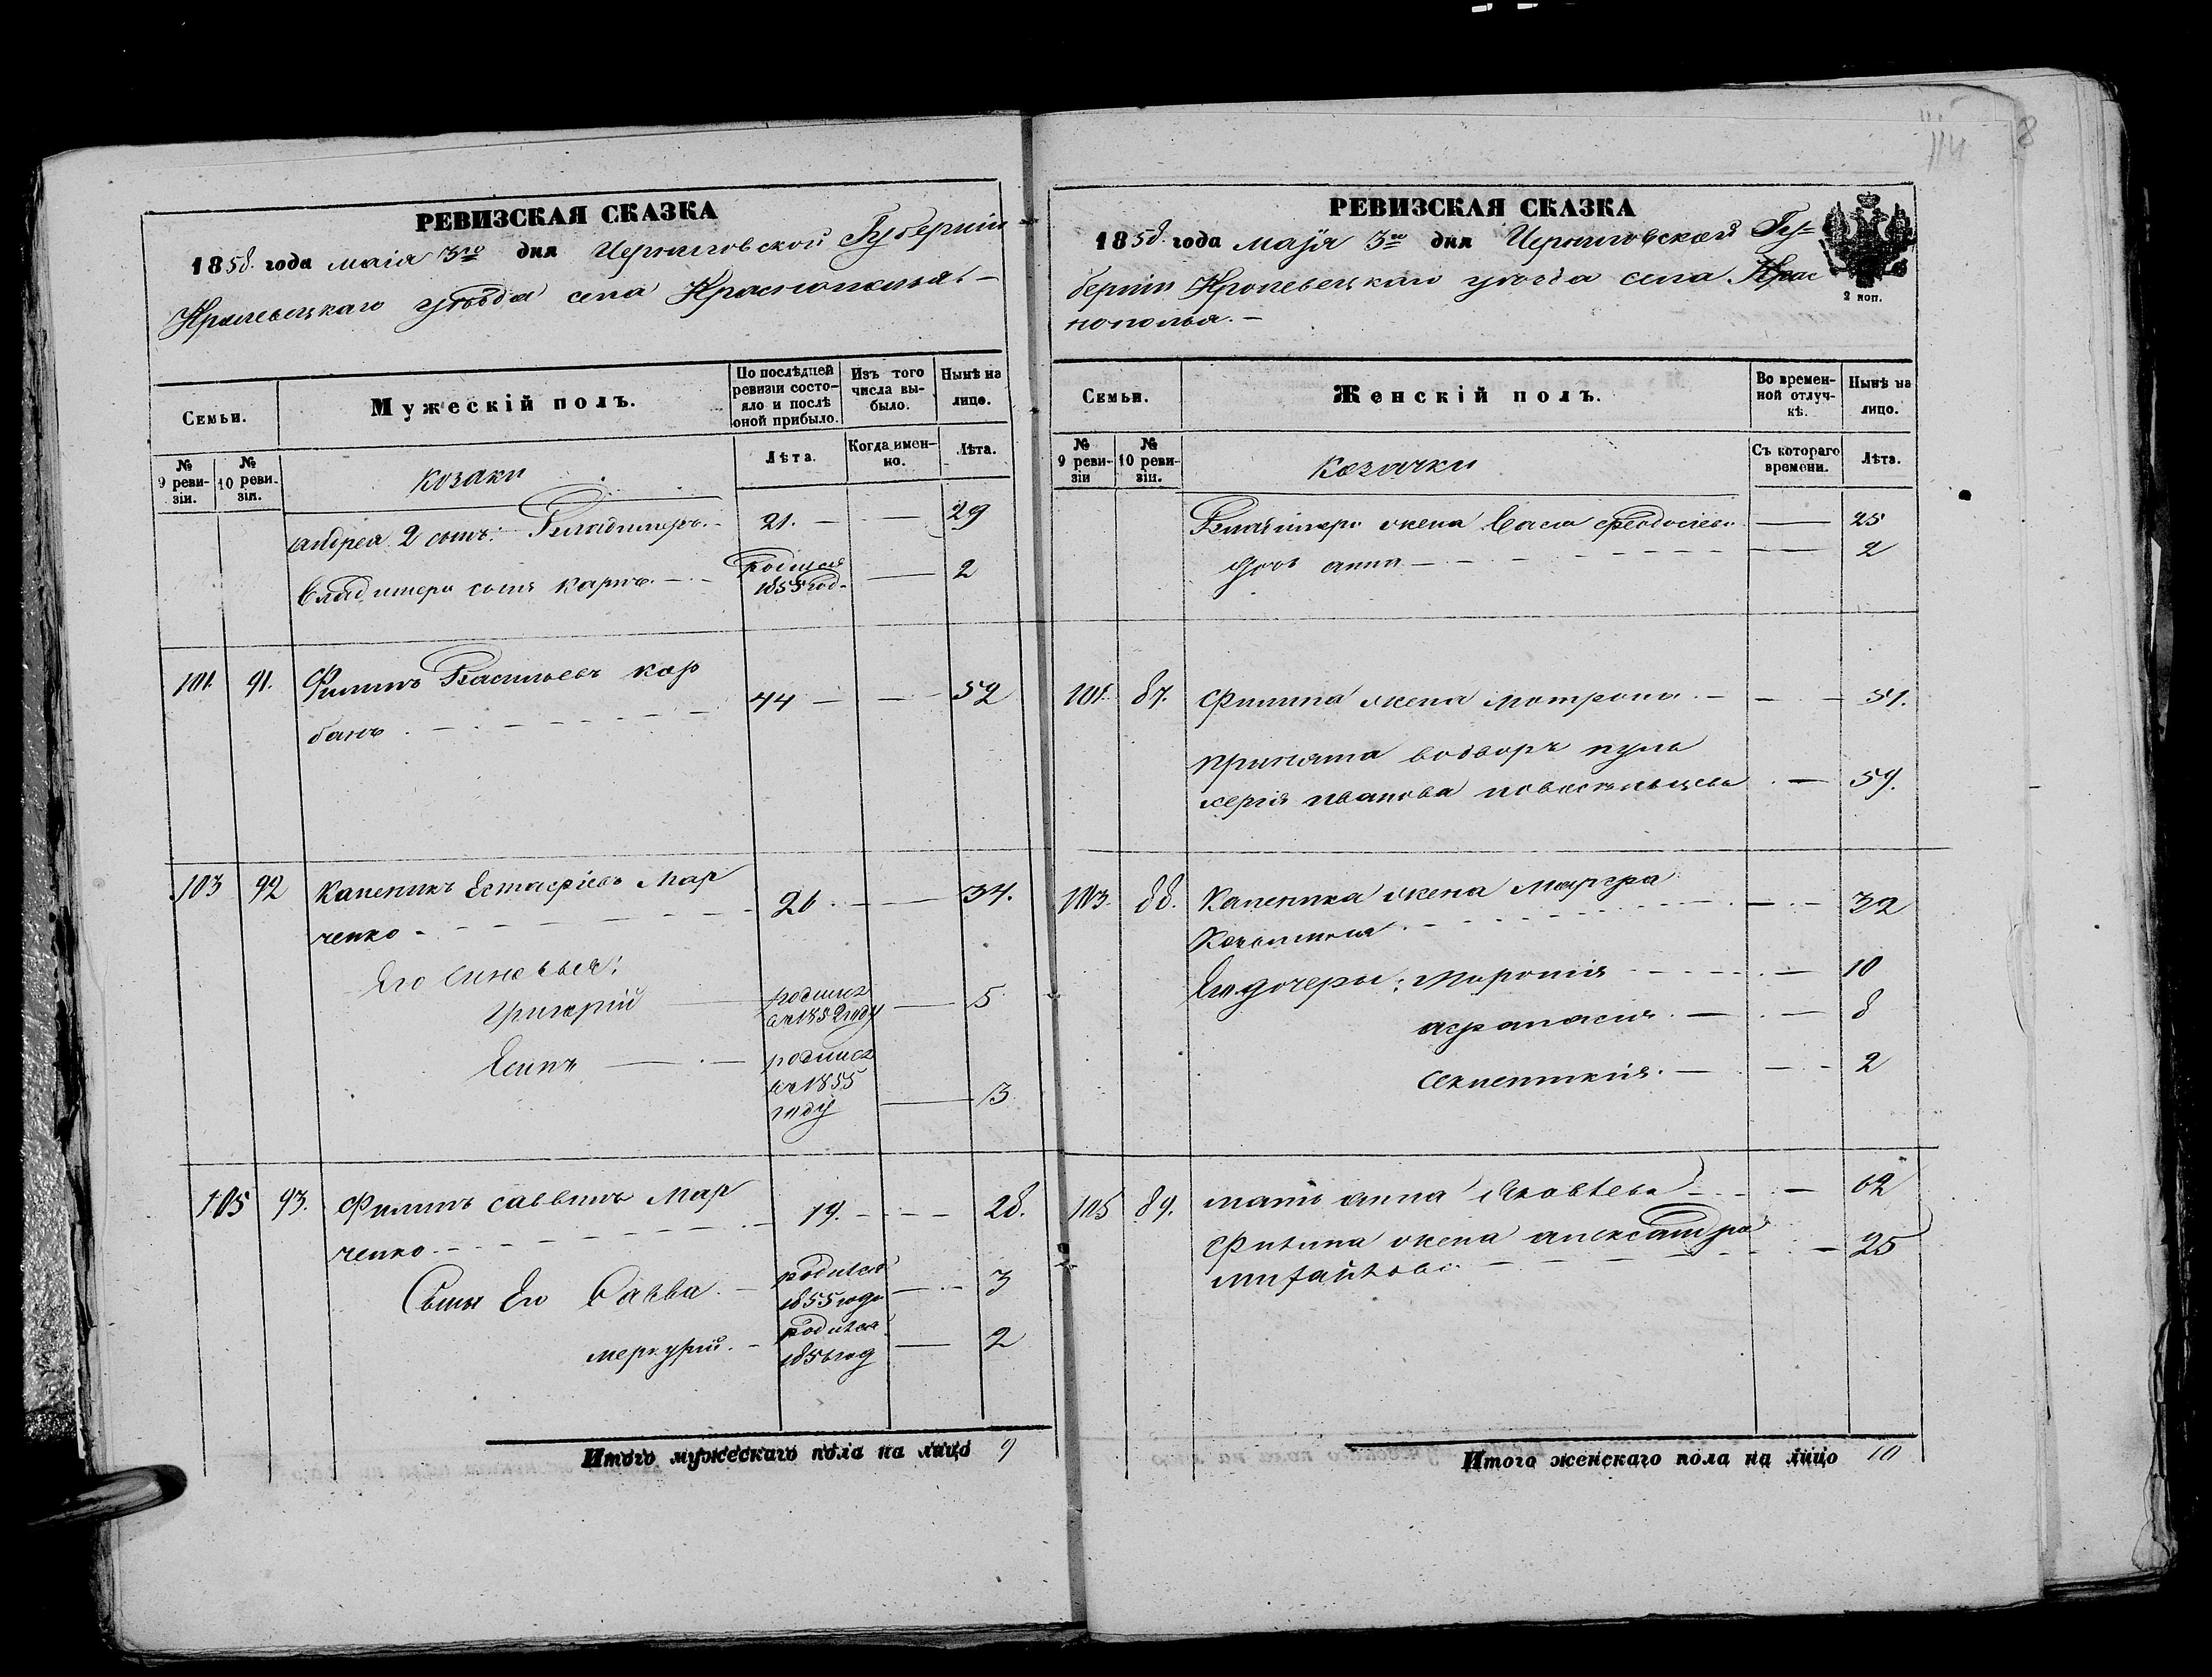 РЕВИЗСКАЯ СКАЗКА
1858. года маія 3го дня Черниговской Губерніи
Кролевецкаго уѣзда села Краснополья. —
Семьи.
Мужескій полъ.
По послѣдней ревизіи состояло и послѣ оной прибыло.
Изъ того числа выбыло.
Нынѣ на лицо.
№ 9 ревизіи.
№ 10 ревизіи.
Лѣта.
Когда именно.
Лѣта.
Козаки
Андрея 2 сынъ: Владимеръ. 21. — — 29
Владимера сынъ Карпъ. — родился 1855 год. — 2
101. 91. Филипъ Васильевъ Кар
банъ 44 — — 52
103 92 Каленикъ Естафіевъ Мар
ченко 26 — — 34.
Его синовья:
Григорій родился въ 1852 году — 5
Есипъ — родился въ 1855 году — 3
105 93. Филипъ Саввинъ Мар
ченко 19. — — 28.
Сыны Его Савва. — родился 1855 года — 3
Меркурій. — родился 1856 год — 2
Итого мужескаго пола на лицо 9
114
8
РЕВИЗСКАЯ СКАЗКА
1858. года маія 3го дня Черниговской Гу=
берніи Кролевецкаго уѣзда села Крас
нополья. —
2 коп.
Семьи.
Женскій полъ.
Во временной отлучкѣ.
Нынѣ на лицо.
№ 9 ревизіи
№ 10 ревизіи.
Съ котораго времени.
Лѣта.
Козачки
Владимера жена Васса Феодосіева — 25
дочь Анна — — 2
101. 87. Филипа жена Мотрона. — — 51.
Принята водворъ Пуль
херія Иванова — 59.
103. 88. Каленика жена Марфа
— 32
Его дочеры: Миронія — 10
Афанасия. — — 8
— 2
105 89. мать Анна Яковлева — 62
Филипа жена Александра
Михайлова — 25
Итого женскаго пола на лицо 10